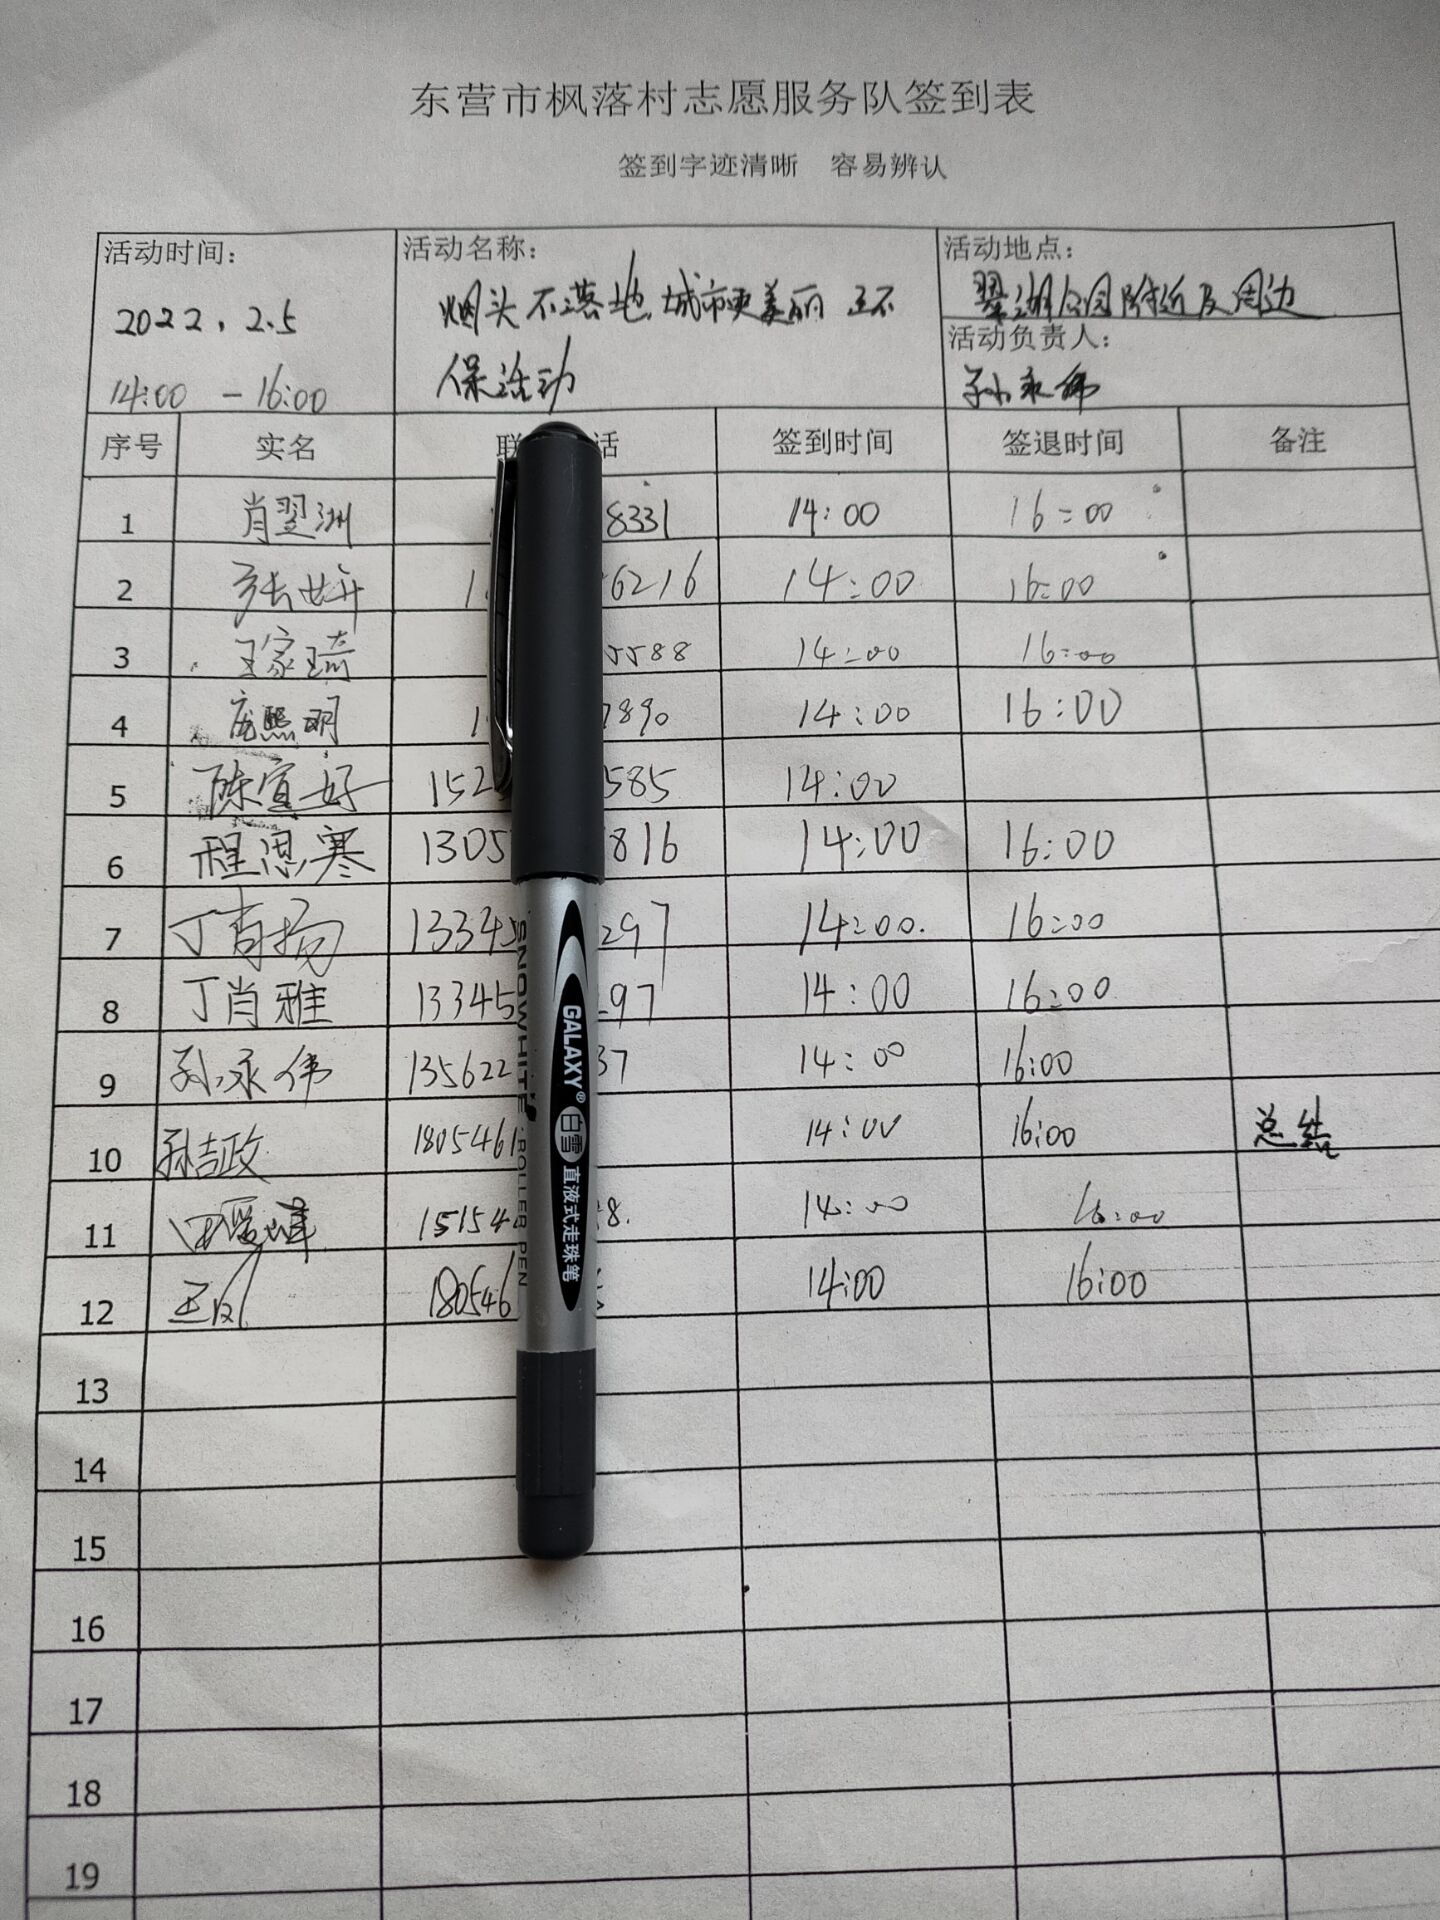 东营市枫落村志愿服务队签到表
签到字迹清晰 容易辨认
活动时间： 活动名称： 活动地点：
2022.2.5 烟头不落地,城市更美丽 环 翠湖公园附近及周边
14:00 - 16:00 保活动 活动负责人：
孙永伟
序号 实名 联 话 签到时间 签退时间 备注
1 肖翌洲 8331 14:00 16:00
2 张世妍 1 6216 14:00 16:00
3 王家琦 5588 14:00 16:00
4 庞熙明 1 7890 14:00 16:00
5 陈宣好 152 585 14:00
6 程思寒 1305 816 14:00 16:00
7 丁肖扬 13345 297 14:00. 16:00
8 丁肖雅 13345 97 14:00 16:00
9 孙永伟 135622 37 14:00 16:00
10 孙吉政 1805461 14:00 16:00 总结
11 15154 8. 14:00 16:00
12 王凤 180546 14:00 16:00
13
14
15
16
17
18
19
SNOWHITE ROLLER PEN
GALAXY® 白雪 直液式走珠笔